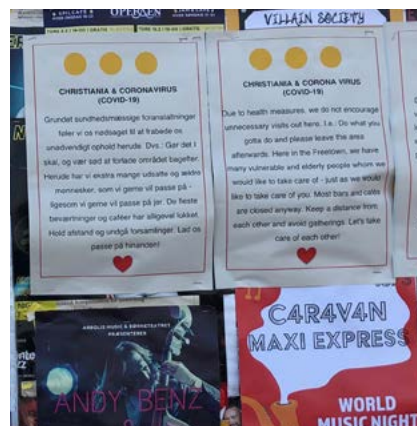 OPERAEN
VILLAIN SOCIETY
CHRISTIANIA & CORONAVIRUS
(COVID-19)
Grundet sundhedsmæssige foranstaltninger
føler vi os nødsaget til at frabede os
unødvendigt ophold herude. Dvs.: Gør det I
skal, og vær sød at forlade området bagefter.
Herude har vi ekstra mange udsatte og ældre
mennesker, som vi gerne vil passe på -
ligesom vi gerne vil passe på jer. De fleste
beværtninger og caféer har alligevel lukket.
Hold afstand og undgå forsamlinger. Lad os
passe på hinanden!
CHRISTIANIA & CORONA VIRUS
(COVID-19)
Due to health measures, we do not encourage
unnecessary visits out here. I.e.: Do what you
gotta do and please leave the area
afterwards. Here in the Freetown, we have
many vulnerable and elderly people whom we
would like to take care of - just as we would
like to take care of you. Most bars and cafés
are closed anyway. Keep a distance from
each other and avoid gatherings. Let's take
care of each other!
ANDY BENZ
C4R4V4N
MAXI EXPRESS
WORLD
MUSIC NIGHT